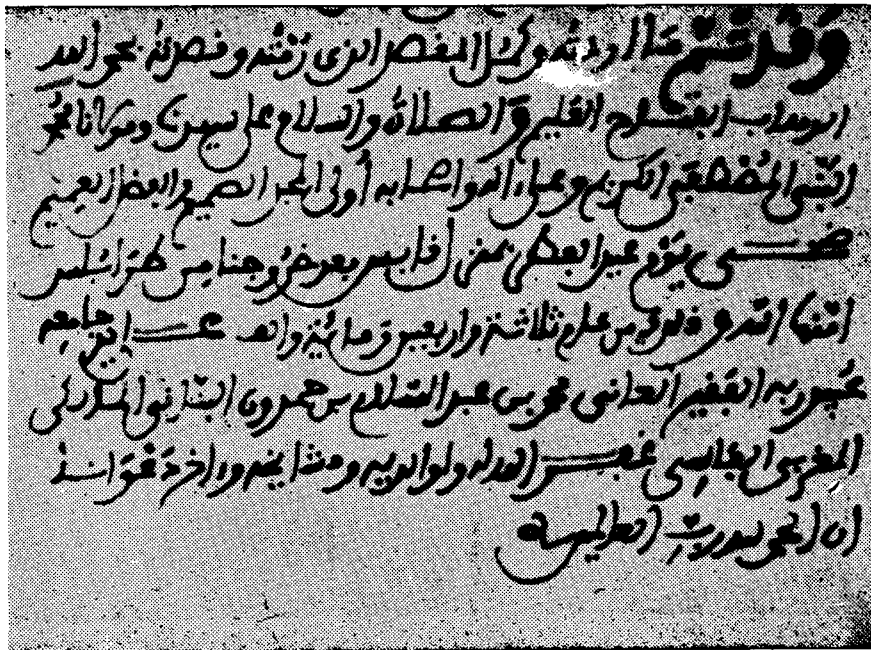 وَقَد تَمَّ مَا أردته وكمل المقصد الذي رمته وقصدته بحمد الله
الوهاب الفتاح العليم والصلاة والسلام على سيدنا ومولانا محمد
النبي المصطفى الكريم وعلى ءاله وأصحابه أولى المجد الصميم والفضل العميم
ضحى يوم عيد الفطر بمدينة فابس بعد خروجنا من طرابلس
أمنها الله وذلك من عام ثلاثة وأربعين ومائة وألف على يد جامعه
عبيد ربه الفقير الفاني محمد بن عبد السلام بن حمدون البناني
المغربي الفاسي غفر الله له ولوالديه ومشايخه وءاخر دعوانا
أن الحمد لله رب العالمين